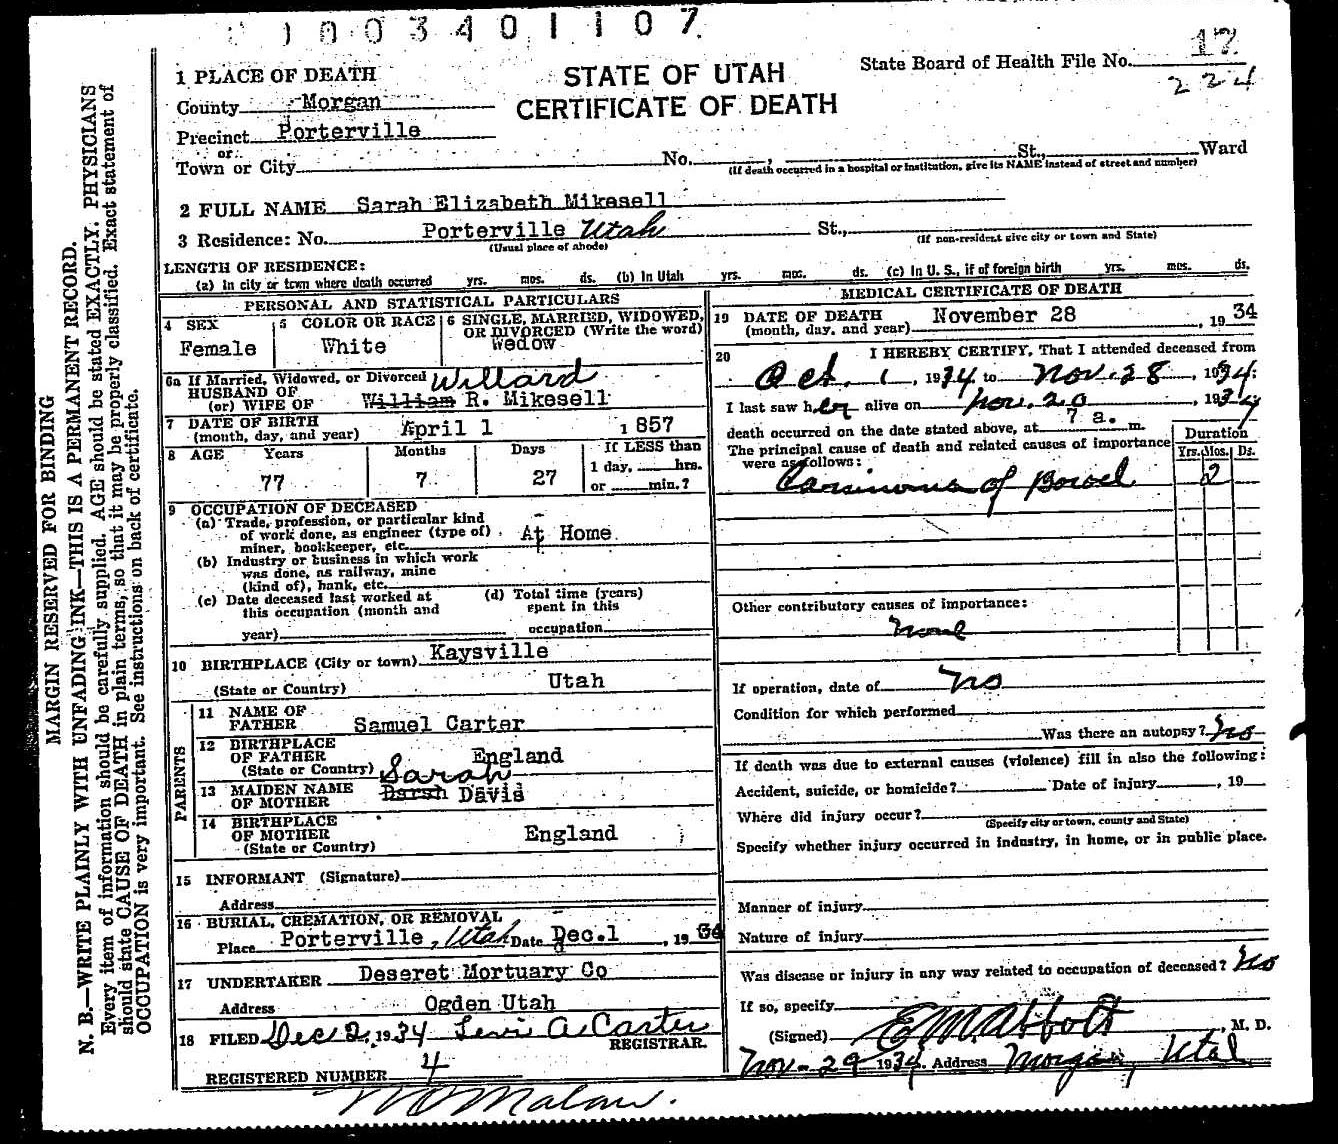 1003401107
1 PLACE OF DEATH
County Morgan
Precinct Porterville
or
Town or City No. , St., Ward
(If death occurred in a hospital or institution, give its NAME instead of street and number)
STATE OF UTAH
CERTIFICATE OF DEATH
State Board of Health File No. 17
224
2 FULL NAME Sarah Elizabeth Mikesell
3 Residence: No. Porterville Utah St.,
(Usual place of abode) (If non-resident give city or town and State)
LENGTH OF RESIDENCE:
(a) In city or town where death occurred yrs. mos. ds. (b) In Utah yrs. mos. ds. (c) In U. S., if of foreign birth yrs. mos. ds.
PERSONAL AND STATISTICAL PARTICULARS
4 SEX
Female
5 COLOR OR RACE
White
6 SINGLE, MARRIED, WIDOWED,
OR DIVORCED (Write the word)
Wedow
6a If Married, Widowed, or Divorced Willard
HUSBAND OF
(or) WIFE OF William R. Mikesell
7 DATE OF BIRTH
(month, day, and year) April 1 1857
8 AGE Years Months Days If LESS than
1 day, hrs.
77 7 27 or min.?
9 OCCUPATION OF DECEASED
(a) Trade, profession, or particular kind
of work done, as engineer (type of)
miner, bookkeeper, etc. At Home
(b) Industry or business in which work
was done, as railway, mine
(kind of), bank, etc.
(c) Date deceased last worked at
this occupation (month and
year)
(d) Total time (years)
spent in this
occupation
10 BIRTHPLACE (City or town) Kaysville
(State or Country) Utah
PARENTS
11 NAME OF
FATHER Samuel Carter
12 BIRTHPLACE
OF FATHER England
(State or Country)
Sarah
13 MAIDEN NAME
OF MOTHER Davis
14 BIRTHPLACE
OF MOTHER England
(State or Country)
15 INFORMANT (Signature)
Address
16 BURIAL, CREMATION, OR REMOVAL
Place Porterville, Utah Date Dec.1 , 1934
17 UNDERTAKER Deseret Mortuary Co
Address Ogden Utah
18 FILED Dec 2, 1934 Levi A Carter
REGISTRAR.
REGISTERED NUMBER 4
MEDICAL CERTIFICATE OF DEATH
19 DATE OF DEATH
(month, day, and year) November 28 , 1934
20 I HEREBY CERTIFY, That I attended deceased from
Oct. 1 , 1934 to Nov. 28 , 1934;
I last saw her alive on Nov. 20 , 1934
death occurred on the date stated above, at 7 a. m.
The principal cause of death and related causes of importance
were as follows:
Duration
Yrs. Mos. Ds.
Carsinoma of Bowel 2
Other contributory causes of importance:
None
If operation, date of No
Condition for which performed
Was there an autopsy? No
If death was due to external causes (violence) fill in also the following:
Accident, suicide, or homicide? Date of injury , 19
Where did injury occur?
(Specify city or town, county and State)
Specify whether injury occurred in industry, in home, or in public place.
Manner of injury
Nature of injury
Was disease or injury in any way related to occupation of deceased? No
If so, specify
(Signed) E M Abbott , M. D.
Nov - 29 1934 Address Morgan, Utah
MARGIN RESERVED FOR BINDING
N. B.—WRITE PLAINLY WITH UNFADING INK—THIS IS A PERMANENT RECORD.
Every item of information should be carefully supplied. AGE should be stated EXACTLY. PHYSICIANS
should state CAUSE OF DEATH in plain terms, so that it may be properly classified. Exact statement of
OCCUPATION is very important. See instructions on back of certificate.